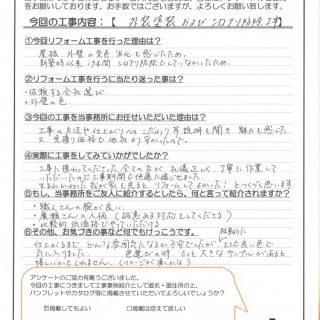 をお願いしております。お手数ではございますが、よろしくお願い致します。
今回の工事内容：【 外装塗装 および シロアリ防除工事】
①今回リフォーム工事を行った理由は？
屋根、外壁の変色、劣化を感じたため。
新築時以来 シロアリ防除をしていなかったため。
②リフォーム工事を行うに当たり迷った事は？
・依頼する会社選び
・外壁の色
③今回の工事を当事務所にお任せいただいた理由は？
工事の方法や仕上がりへのこだわり等説明を聞き、魅力を感じた
又、見積り価格も他社より安かったので。
④実際に工事をしてみていかがでしたか？
工事に携わってくださった全ての方が礼儀正しく、丁寧に作業して
いただいたので工事期間も快適に過ごせました。
我が家を見ると、リフォームしてよかった！とつくづく思います
⑤もし、当事務所をご友人に紹介するとしたら、何と言って紹介されますか？
・職人さんの腕が良い
・人柄（誠意ある対応をしてくださる）
・比較的低価格でやっていただける
⑥その他、お気づきの事など何でもけっこうです。
仕上がるまで どんな雰囲気になるか不安でしたが
気に入りました。 色選びの時、もっと大きなサンプルがあると
嬉しいかもしれません。（イメージが湧くかな）
アンケートのご協力有難うございました。
今回の工事につきまして工事事例紹介として匿名・居住所の上、
パンフレットやカタログ等に掲載させていただいてよろしいでしょうか？
☑掲載してもよい □掲載は控えて欲しい